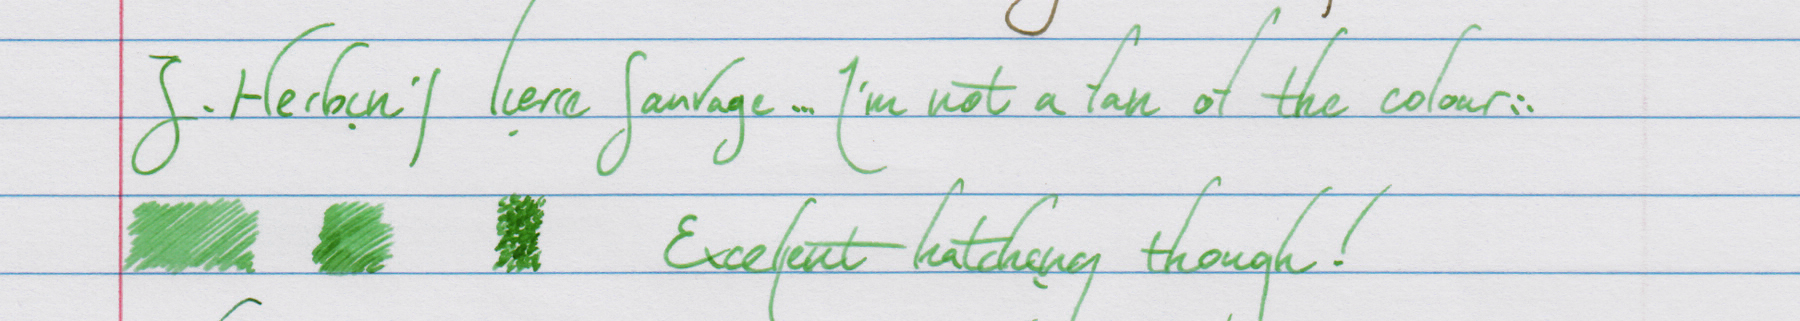 J. Herbin's Lierre Sauvage... I'm not a fan of the colour...
Excellent hatching though!